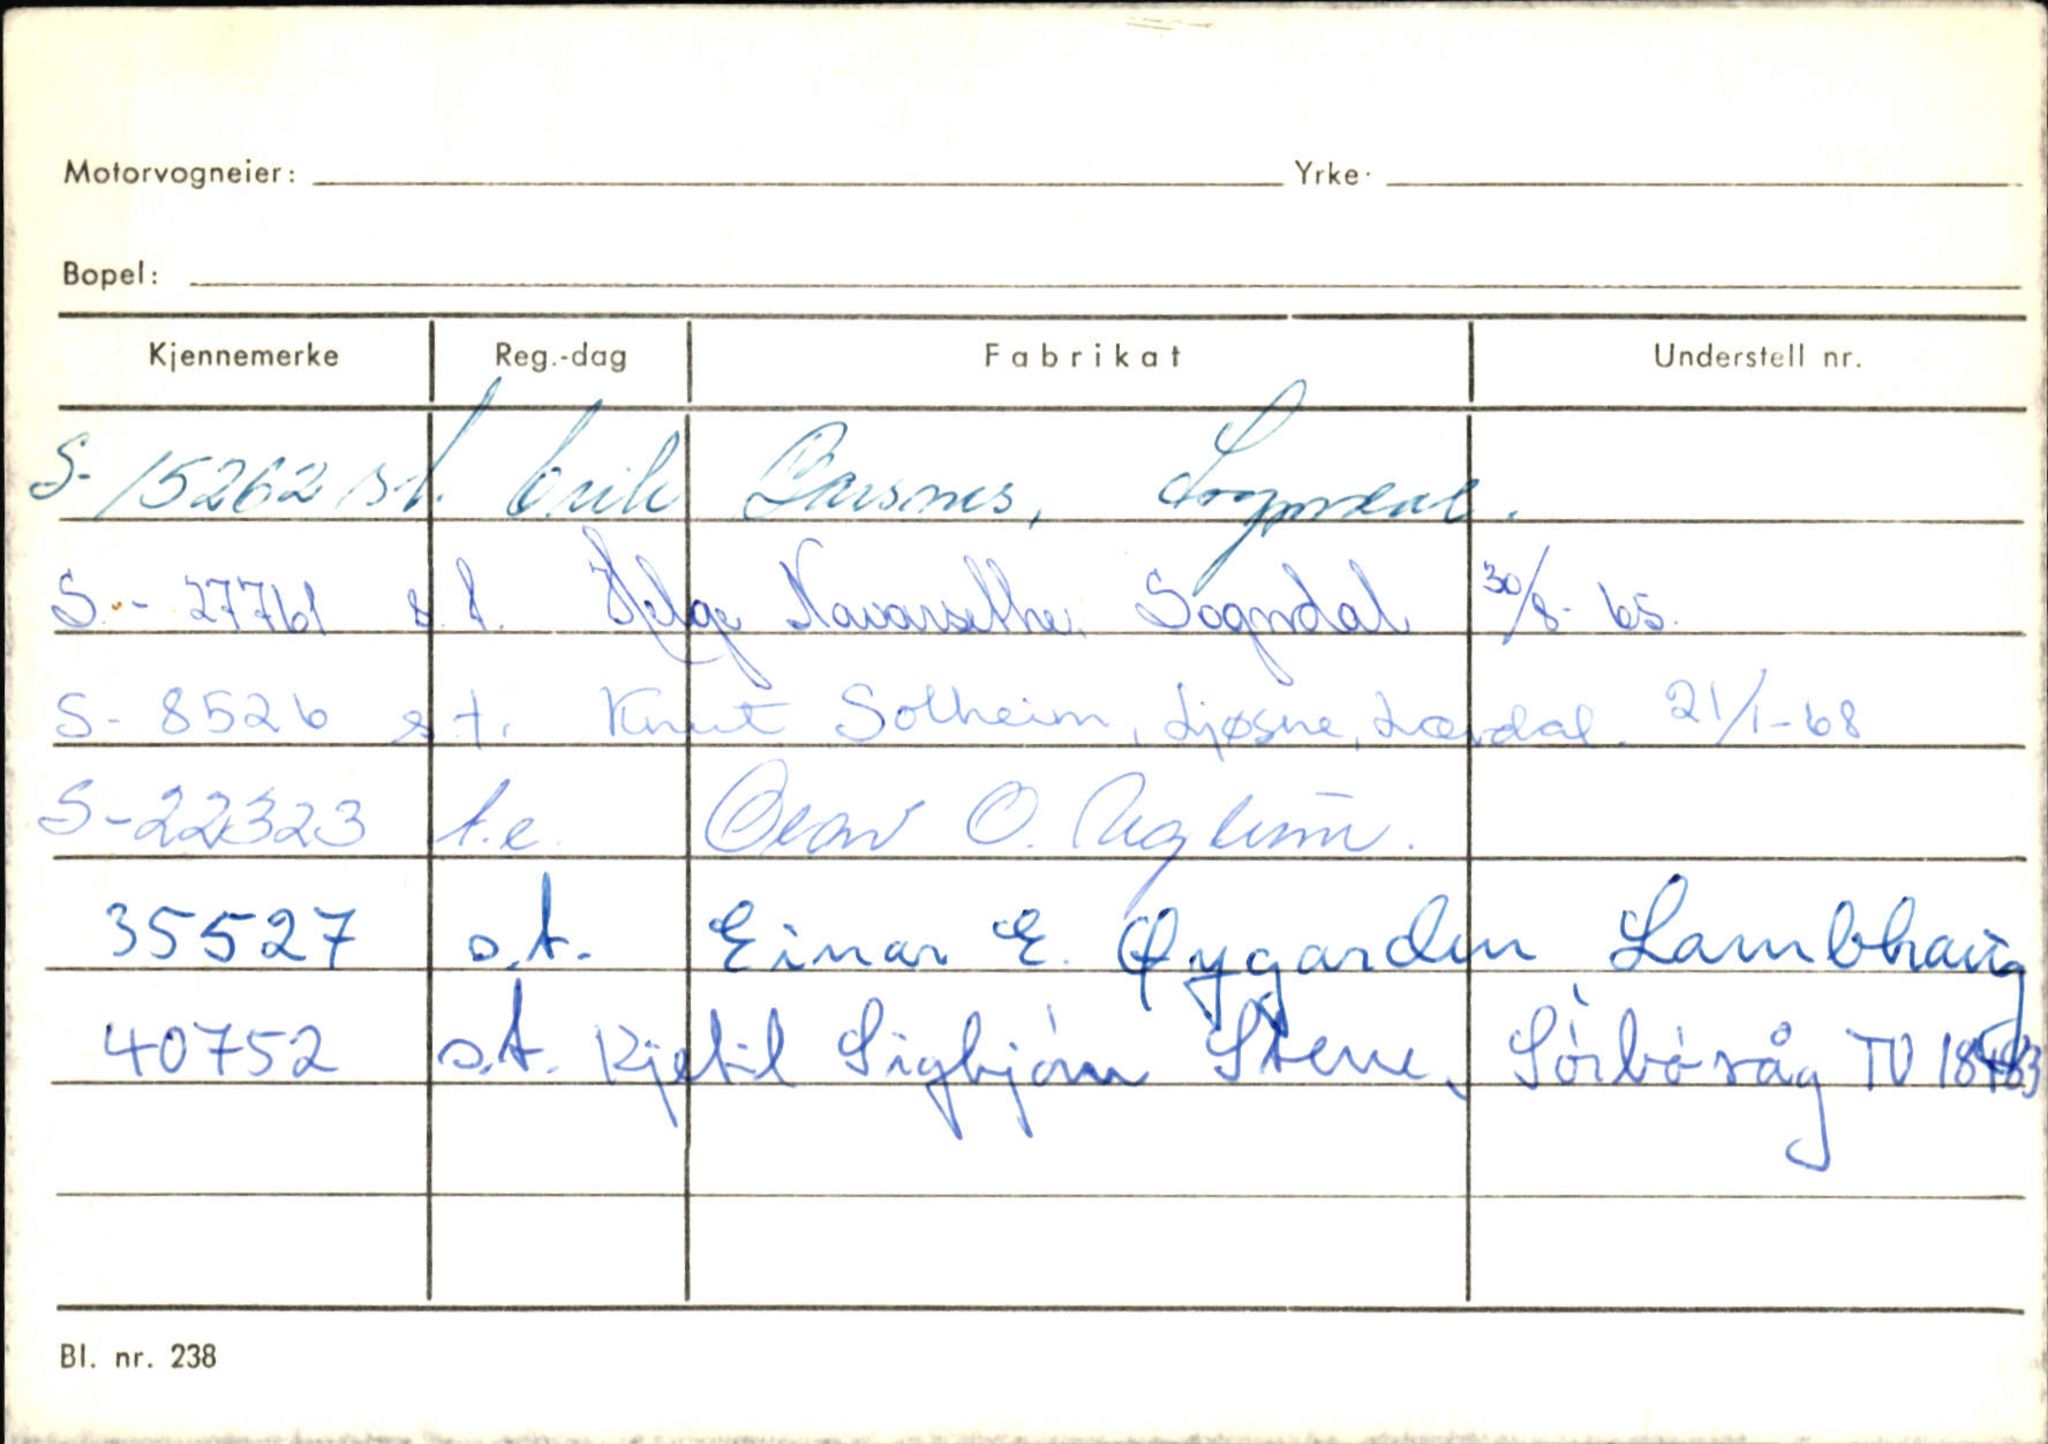 Motorvogneier: Yrke
Bopel:
Kjennemerke Reg.-dag Fabrikat Understell nr.
S-15262 s.t. Eirik Barsnes, Sogndal.
S.- 27761 s.t. Helge Navarsethe. Sogndal 30/8-65.
S- 8526 s.t. Knut Solheim, Ljøsne, Lærdal. 21/1-68
S-22323 t.e. Olav O.
35527 s.t. Einar E. Øygarden Lambhaug
40752 s.t. Kjetil Sigbjörn Stene, Sörbövåg TV
Bl. nr. 238